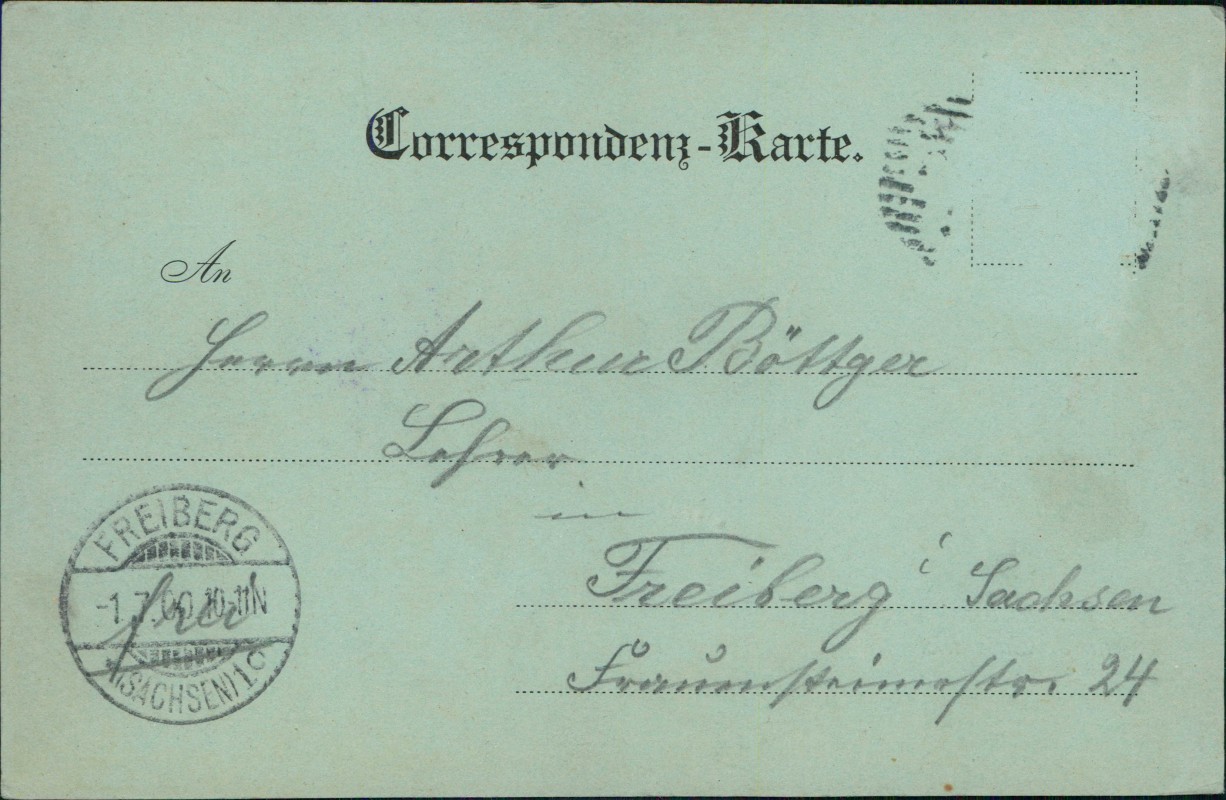 Correspondenz-Karte.
An
Herrn Arthur Böttger
Lehrer
in
Freiberg i Sachsen
Frauensteinerstr. 24
FREIBERG
-1.7.00.10-11N
frei
(SACHSEN)1c